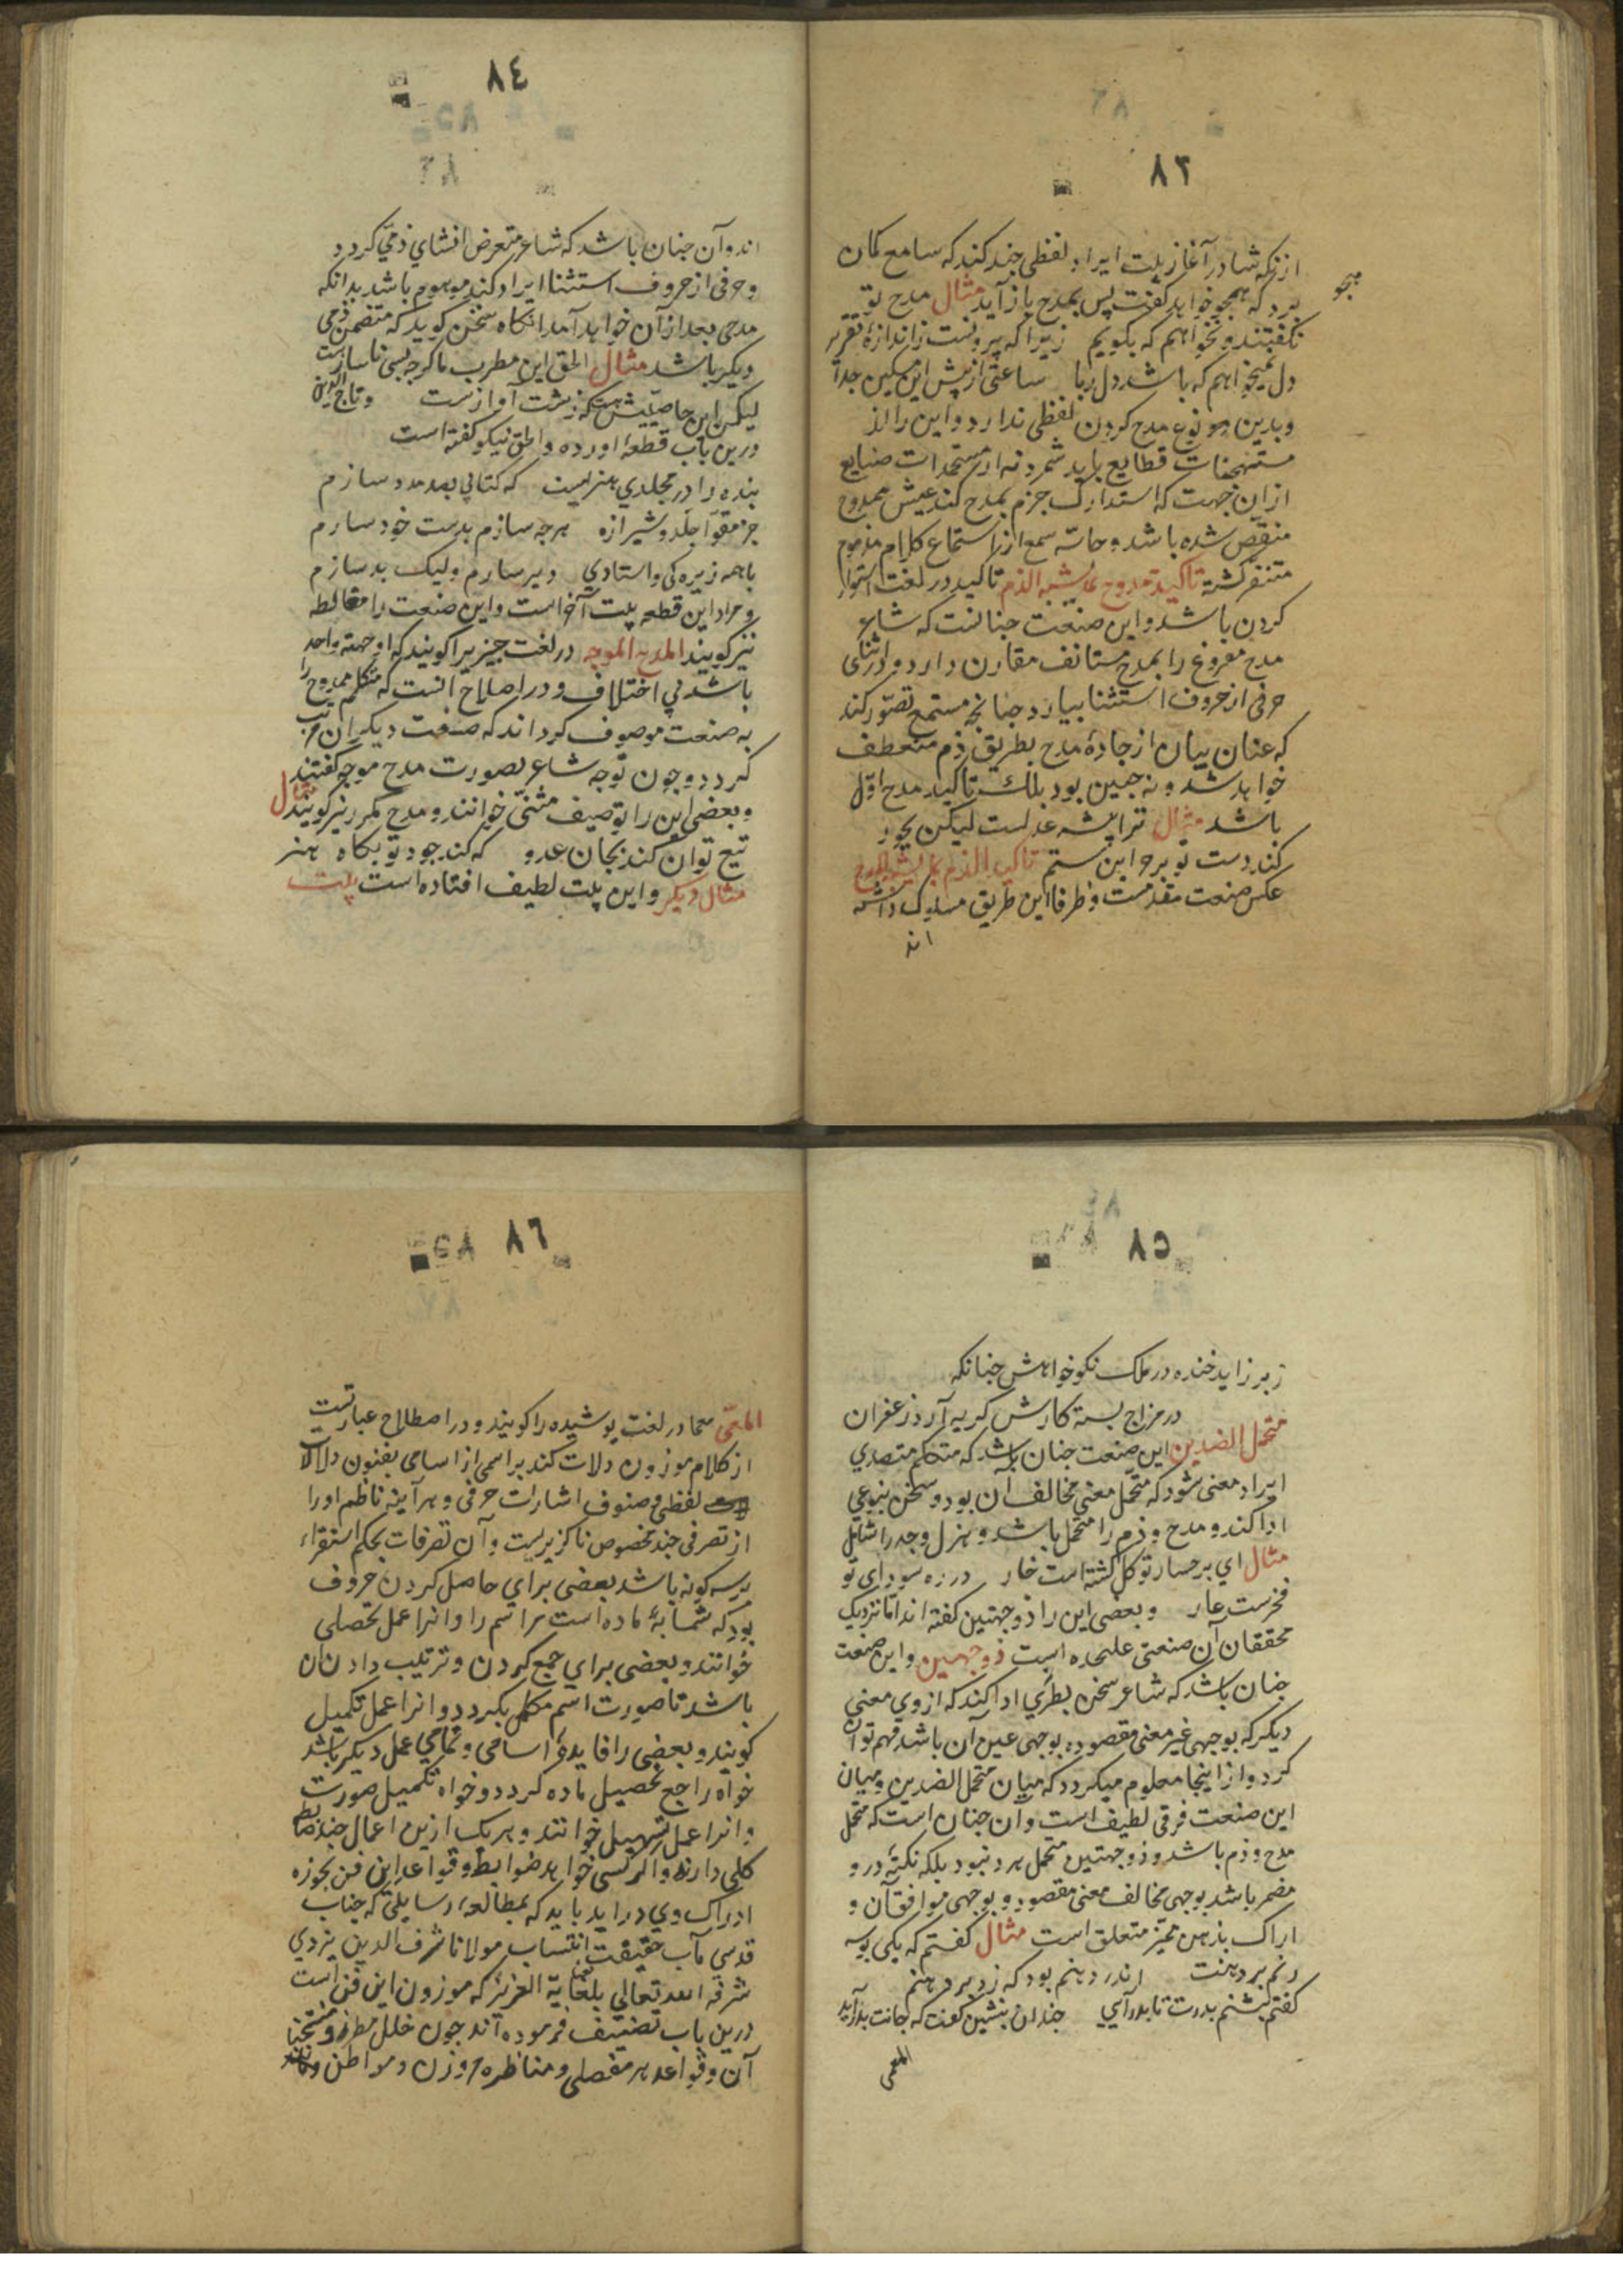 ٨٣
از آنکه شاعر در آغاز بیت ایراد لفظی چند کند که سامع کمان
هجو
برد که هجو خواهد کفت پس بمدح باز آید مثال مدح تو
نکفتند و نخواهم که بکویم زیرا که بیرونست ز اندازهٔ تقریر
دل نمیخواهم که باشد دل ربا ساعتی از پیش این مسکین جدا
و بدین نوع مدح کردن لفظی ندارد و این را از
مستهجنات قطایع باید شمرد نه از مستحمدات صنایع
از ان جهت که استدارک جزم بمدح کند عیش ممدوح
منغّص شده باشد و حاسّه سمع از استماع کلام مذموم
متنفر کشته تاکید مدوح بمایشبه الذم تاکید در لغت استوار
کردن باشد و این صنعت چنانست که شاعر
مدح مفروغ را بمدح مستانف مقارن دارد و در اثنای
حرفی از حروف استثنا بیارد چنانچه مستمع تصوّر کند
که عنان بیان از جادهٔ مدح بطریق ذم منعطف
خواهد شد و نه چنین بود بلک تاکید مدح اوّل
باشد مثال ترا پیشه عدلست لیکن بجود
کند دست تو بر خواین ستم تاکید الذم بمایشبه المدح
عکس صنعت مقدمست و ظرفا این طریق مسلوک داشته
اند
٨٤
اند و آن چنان باشد که شاعر متعرض افشای ذمی کردد
و حرفی از حروف استثنا ایراد کند موهوم باشد بدانکه
مدحی بعد از آن خواهد آمد انکاه سخن کوید که متضمن ذمی
دیکر باشد مثال الحق این مطرب ما کرچه بسی ناسازست
لیکن این خاصیتش هست که زشت آوازست و تاج الدین
درین باب قطعهٔ اورده و الحق نیکو کفته است
بنده را در مجلدی هنریست که کتابی بصد مدد سازم
جز مقوّا جلد و شیرازه هرچه سازم بدست خود سازم
با همه زیرکی و استادی دیر سازم ولیک بد سازم
و مراد این قطعه بیت آخر است و این صنعت را مغالطه
نیز کویند المدح الموجه در لغت چیزیرا کویند که او جهته واحد
باشد بی اختلاف و در اصلاح انست که متکلم ممدوح را
به صنعت موصوف کرداند که صنعت دیکر ان مرتب
کردد و چون توجه شاعر بصورت مدح موجه کفتند
و بعضی این را توصیف مثنّی خوانند و مدح مکرر نیز کویند مثال
تیع توان کند بجان عدو که کند جود تو بکاه هنر
مثال دیکر و این بیت لطیف افتاده است بیت
٨٥
زبر زاید خنده در ملک نکو خواهش چنانکه
در مزاج بسته کارش کریه آرد زعفران
متحمل الضدین این صنعت چنان باشد که متکلم متصدی
ایراد معنی شود که متحمل معنی مخالف آن بود و سخن بنوعی
ادا کند و مدح و ذم را متحمل باشد و هزل و جد را شامل
مثال ای بر حسار تو کل کشته است خار در ره سودای تو
فخرست عار و بعضی این را ذوجهتین کفته اند اما نزدیک
محققان آن صنعتی علیحده است ذوجهتین و این صنعت
چنان باشد که شاعر سخن بطرزی ادا کند که از وی معنی
دیکر که بوجهی غیر معنی مقصود و بوجهی عین آن باشد فهم توان
کرد و از اینجا معلوم میکردد که میان متحمل الضدین و میان
این صنعت فرقی لطیف است و آن چنان است که متحمل
مدح و ذم باشد و ذوجهتین متحمل هر دو نبود بلکه نکتهٔ درو
مضمر باشد بوجهی مخالف معنی مقصود و بوجهی موافق آن و
ادراک بذهن ممیّز متعلق است مثال کفتم که یکی بوسه
زنم بر دهنت اندر دهنم بود که زد بر دهنم
کفتم بنشنم بدرت تا بدر آیی چندان بنشین کفت که جانت بدر آید
المعمی
٨٦
المعمّی معما در لغت پوشیده را کویند و در اصطلاح عبارتست
از کلام موزون دلات کند بر اسمی از اسامی بفنون دلالات
لفظی و صنوف اشارات حرفی و هر آینه ناظم او را
از تصرفی چند مخصوص ناکزیریست و آن تصرفات بحکم استقراء
بر سه کونه باشد بعضی برای حاصل کردن حروف
بود که بمثابهٔ ماده است مر اسم را و انرا عمل تحصلی
خوانند و بعضی برای جمع کردن و ترتیب دادن ان
باشد تا صورت اسم مکمل بکیرد و انرا عمل تکمیل
کویند و بعضی را فایدهٔ اسامی و تمامی عمل دیکر باشد
خواه راجع تحصیل ماده کردد و خواه تکمیل صورت
و انرا عمل تسهیل خوانند و هر یک ازین اعمال چند ضابط
کلی دارند و اکر کسی خواهد ضوابط و قواعد این فن بحوزه
ادراک وی دراید باید که بمطالعهٔ رسایلی که جناب
قدسی مآب حقیقت انتساب مولانا شرف الدین یزدی
شرفه الله تعالی بلقایه العزیز که موزون این فن است
درین باب تصنیف فرموده اند چون حلل مطرز و منتخبات
آن و قواعد هر مفصلی و مناظره وزن و مواطن و